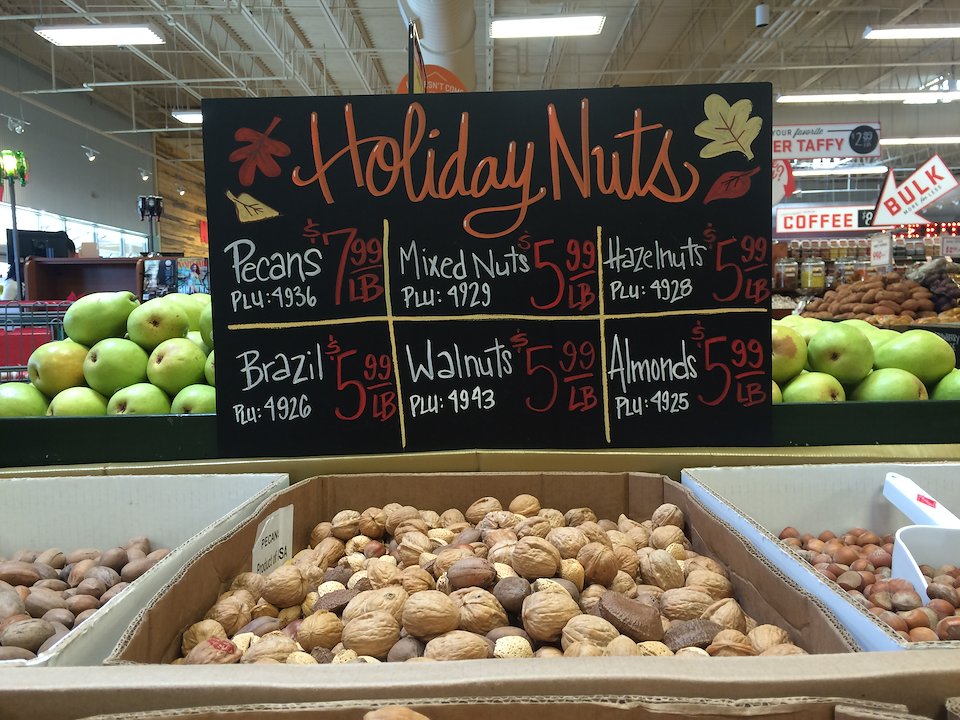 Holiday Nuts
Pecans $7.99 LB
PLU: 4936
Mixed Nuts $5.99 LB
PLU: 4929
Hazelnuts $5.99 LB
PLU: 4928
Brazil $5.99 LB
PLU: 4926
Walnuts $5.99 LB
PLU: 4943
Almonds $5.99 LB
PLU: 4925
YOUR favorite
ER TAFFY
COFFEE
BULK
MORE for LESS
PECAN
Product of USA